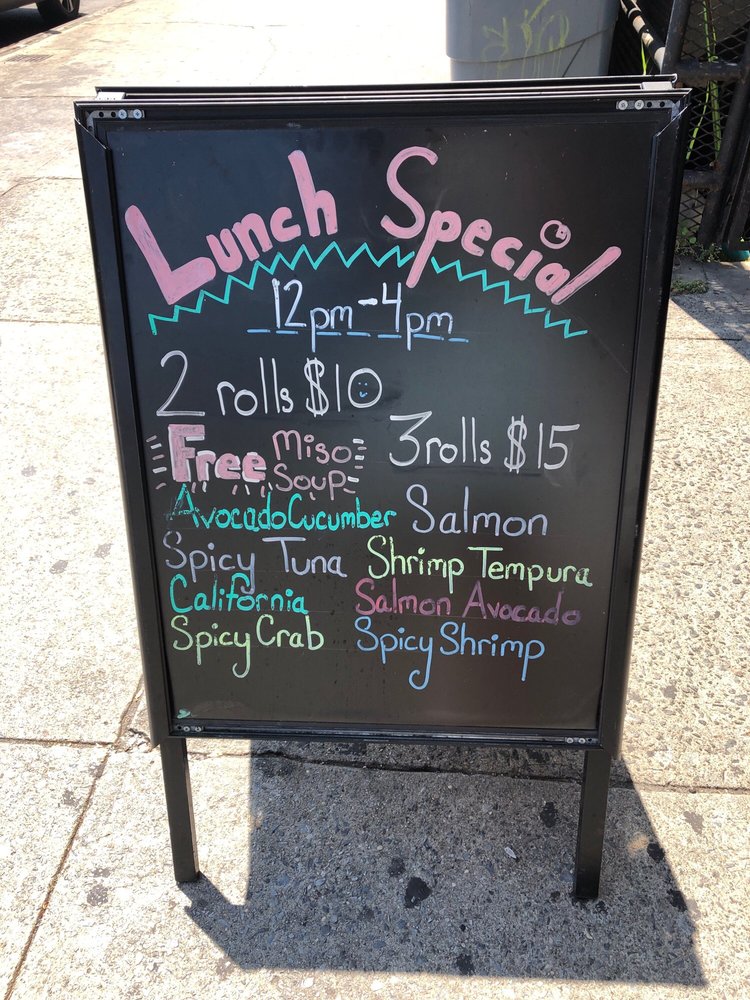 Lunch Special
12pm-4pm
2 rolls $10
3 rolls $15
Free Miso Soup
Avocado Cucumber
Salmon
Spicy Tuna
Shrimp Tempura
California
Salmon Avocado
Spicy Crab
Spicy Shrimp